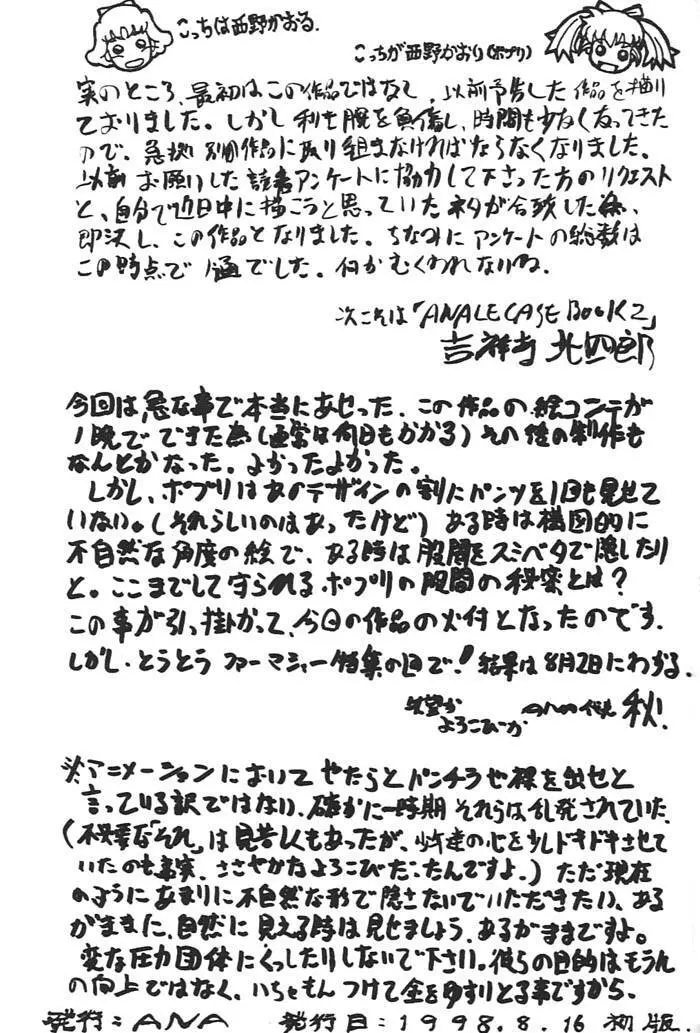 こっちは西野かおる.
こっちが西野かおり(ポプリ)
実のところ、最初はこの作品ではなく、以前予告した作品を描い
ておりました。しかし利き腕を負傷し、時間も少なくなってきた
ので、急拠 別個作品に取り組まなければならなくなりました。
以前 お願いした読者アンケートに協力して下さった方のリクエスト
と、自分で近日中に描こうと思っていたネタが合致した為、
即決し、この作品となりました。ちなみに アンケートの総数は
この時点で 1通でした。何かむくわれないね.
次こそは「ANALE CASE BOOK 2」
吉祥寺 北四郎
今回は急な事で本当にあせった. この作品の絵コンテが
1晩で できた為(通常は何日もかかる)その後の制作も
なんとかなった. よかったよかった。
しかし、ポプリはあのデザインの割にパンツを1回も見せて
いない。(それらしいのはあったけど) ある時は構図的に
不自然な角度の絵で、ある時は股間をスミベタで隠したり
と。ここまでして守られるポプリの股間の秘密とは?
この事が引っ掛かって、今回の作品の火付となったのです.
しかし・とうとう ファーマシャー 特集の回で!結果は8月2日にわかる.
よろこびーか
秋!
※アニメーションにおいて やたらとパンチラや裸を出せと
言っている訳ではない. 確かに一時期 それらは乱発されていた.
(不必要な"それ"は見苦しくもあったが、少年達の心を少しドキドキさせて
いたのも事実. ささやかなよろこびだったんですよ.) ただ現在
のようにあまりに不自然な形で隠さないでいただきたい、ある
がままに、自然に 見える時は見せましょう、あるがままですよ。
変な圧力団体にくっしたりしないで下さい。彼らの目的はもうんん
の向上ではなく、いちゃもん つけて金をゆすりとる事ですから.
発行:ANA 発行日:1998.8.16 初版